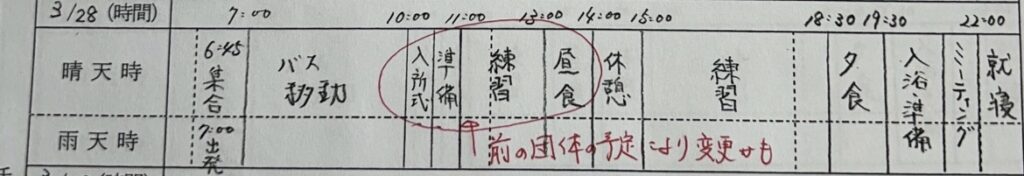 3/28(時間) 7:00 10:00 11:00 13:00 14:00 15:00 18:30 19:30 22:00
晴天時 6:45集合 バス移動 入所式 準備 練習 昼食 休憩 練習 夕食 入浴準備 ミーティング 就寝
雨天時 7:00出発
前の団体の予定により変更かも